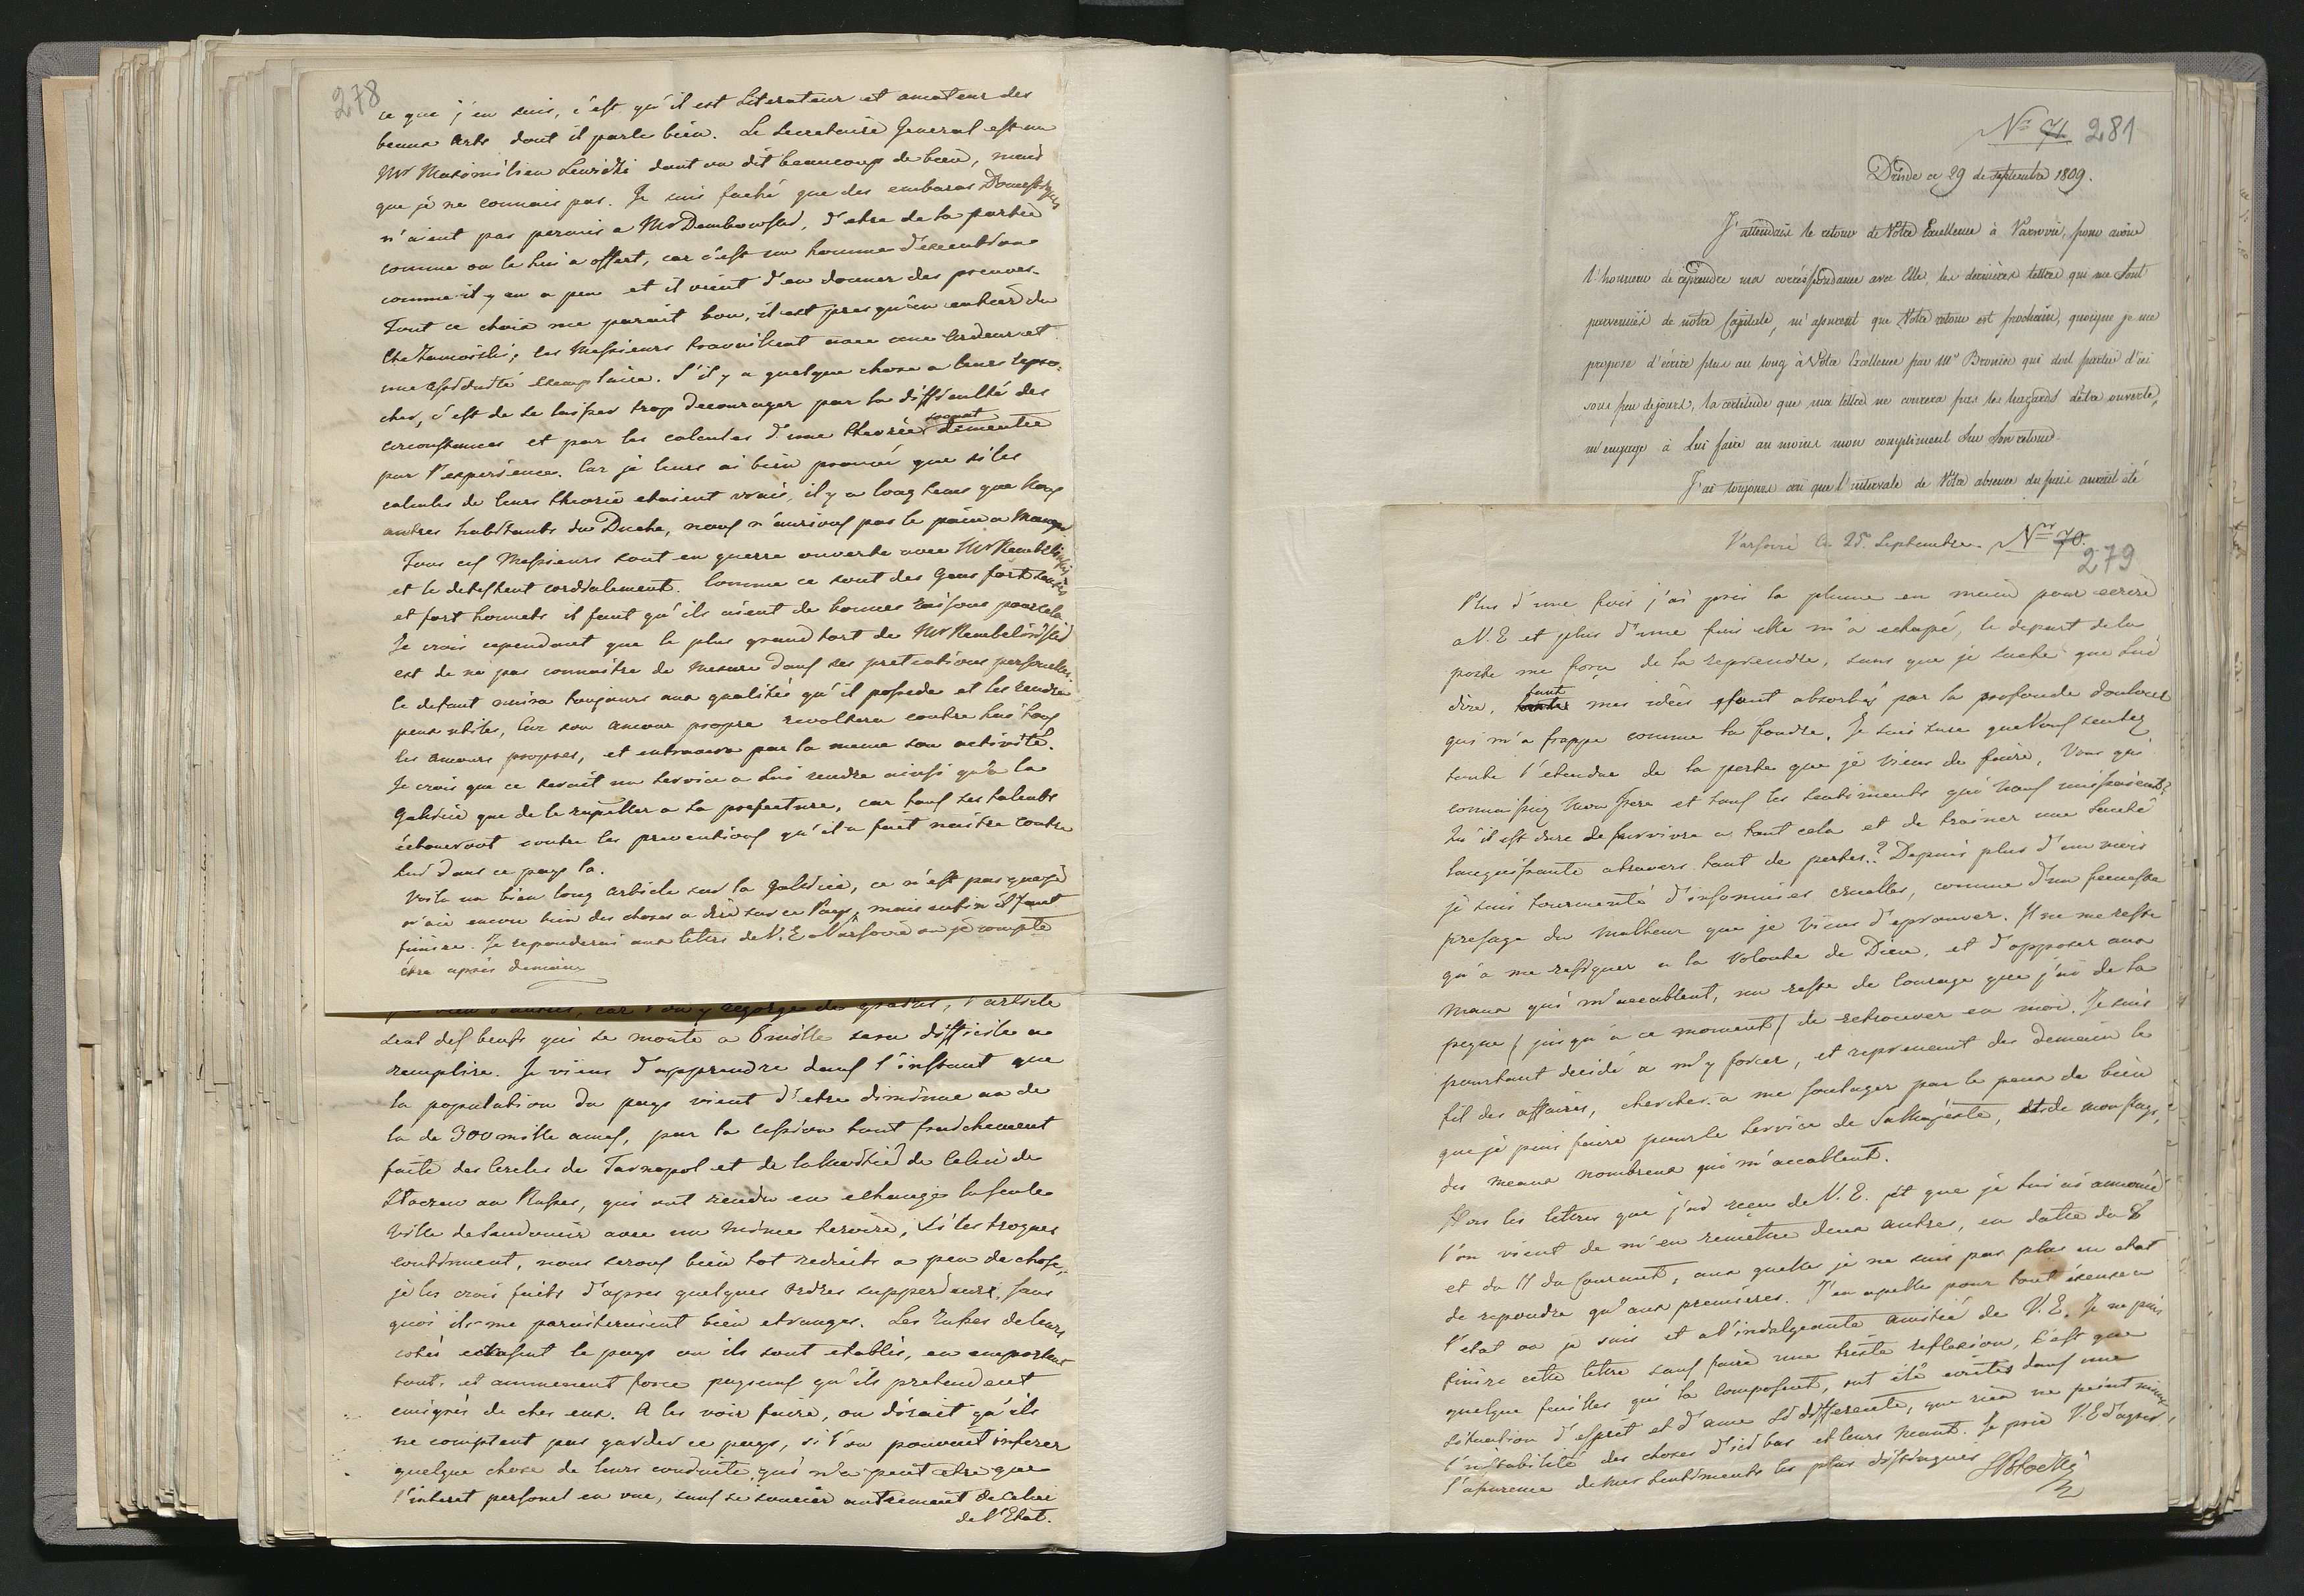 278
ce que j'en sais, c'est qu'il est Literateur et amateur des
beaux Arts dont il parle bien. Le Secretaire General est un
Mr Maximilien dont on dit beaucoup de bien, mais
que je ne connais pas. Je suis faché que des embaras Domestiques
n'aient pas permis a Mr Dembowski, d'etre de la partie
comme on le lui a offert, car c'est un homme d'execution
comme il y en a peu et il vient d'en donner des preuves.
Tout ce choix me parait bon, il est presqu'en entier du
Cte Zamoiski; les Messieurs travaillent avec une ardeur et
une assiduité exemplaire. S'il y a quelque chose a leurs repro:
cher, c'est de se laisser trop decourager par la difficulté des
circonstances et par les calculs d'une theorie souvent dementie
par l'experience. Car je leurs ai bien prouvé que si les
calculs de leurs theorie etaient vrais, il y a longtems que nous
autres habitants du Duché, nous n'aurions pas le pain a manger
Tous ces Messieurs sont en guerre ouverte avec Mr Rembelinski
et le detestent cordialement. Comme ce sont des Gens fort sensés
et fort honnets il faut qu'ils aient de bonnes raisons pour cela
Je crois cependant que le plus grand tort de Mr Rembelinski
est de ne pas connaitre de mesure dans ses pretentions personelles.
Ce defaut nuira toujours aux qualités qu'il possede et les rendra
peux utiles, car son amour propre revoltera contre lui tous
les amours propres, et entravera par la meme son activité.
Je crois que ce serait un service a lui rendre ainsi qu'a la
Galicie que de le rapeller a sa prefecture, car tous ses talents
échoueront contre les preventions qu'il a fait naitre contre
lui dans ce pays la.
Voila un bien long article sur la Galicie, ce n'est pas que je
n'aie encore bien des choses a dire sur ce Pays, mais enfin il faut
finire. Je reponderai aux lettres de V. E. a Varsovie ou je compte
être après demain
car l'on y regorge de grains, l'article
seul des beufs qui se monte a 6 mille sera difficile a
remplire. Je viens d'apprendre dans l'instant que
la population du pays vient d'etre diminue au de
la de 300 mille ames, par la cession tout fraichement
faite des Cercles de Tarnopol et de la moitié de celui de
Złoczew au Russes, qui ont rendu en echange la seule
Ville de Sandomir avec un mince teroire, Si les troques
continuent, nous serons bien tot reduits a peu de chose,
je les crois faits d'apres quelques ordres supperieurs, sans
quoi ils me paraiteraient bien etranges. Les Russes de leurs
cotés ecrasent le pays ou ils sont etablis, en emportent
tout, et ammenent force paysans qu'ils pretendent
emigrés de ches eux. A les voir faire, on dirait qu'ils
ne comptent pas garder ce pays, si l'on pouvait inferer
quelque chose de leurs conduite, qui n'a peut etre que
l'interet personel en vue, sans se soucier autrement de celui
de l'Etat.
No 71 281
Dresde ce 29 de Septembre 1809.
J'attendais le retour de Votre Excellence à Varsovie, pour avoir
l'honneur de reprendre ma corréspondance avec Elle, les dernières lettres qui me sont
parvenuës de notre Capitale, m'assurent que Votre retour est prochain, quoique je me
propose d'écrire plus au long à Votre Excellence par Mr Bronic qui doit partir d'ici
sous peu de jours, la certitude que ma lettre ne courera pas les hazards d'être ouverte,
m'engage à Lui faire au moins mon compliment sur Son retour.
J'ai toujours crû que l'intervale de Votre absence du païs aurait été
Varsovie Ce 25. Septembre. Nro 70.
279
Plus d'une fois j'ai pris la plume en main pour ecrire
a V. E et plus d'une fois elle m'a echapé, le depart de la
poste me force de la reprendre, sans que je sache que Lui
dire, tant mes idées sont absorbés par la profonde douleur
qui m'a frappe comme la foudre. Je suis sure que Vous sentez
toute l'etendue de la perte que je viens de faire, Vous qui
connaissiez mon frere et tous les sentiments qui nous unissaient?
Qu'il est dure de survivre a tout cela et de trainer une Santé
languissante atravers tant de pertes.? Depuis plus d'un mois
je suis tourmenté d'insomnies cruelles, comme d'un funeste
presage du malheur que je viens d'eprouver. Il ne me reste
qu'a me resigner a la Volonté de Dieu, et d'opposer aux
maux qui m'accablent, un reste de courage que j'ai de la
peine (jusqu'à ce moment) de retrouver en moi. Je suis
pourtant decidé a m'y forcer, et reprenant des demain le
fil des affaires, chercher a me soulager par le peux de bien
que je puis faire pour le Service de Sa Majesté, et de mon Pays,
des meaux nombreux qui m'accablent.
Hors les lettres que j'ai reçu de V. E. et que je lui ai annoncé
l'on vient de m'en remettre deux autres, en datte du 8
et du 11 du Courant, aux quelles je ne suis pas plus en etat
de repondre qu'aux premieres. J'en apelle pour tout excuse a
l'etat ou je suis et a l'indulgeante amitié de V. E. Je ne puis
finire cette lettre sans faire une triste reflexion, c'est que
quelque feuilles qui la composent, ont été ecrites dans une
situation d'esprit et d'ame si differente, que rien ne peint mieux
l'instabilité des choses d'ici bas et leurs neant. Je prie V. E d'agreer
l'assurence de mes sentiments les plus distingués
SPotocki